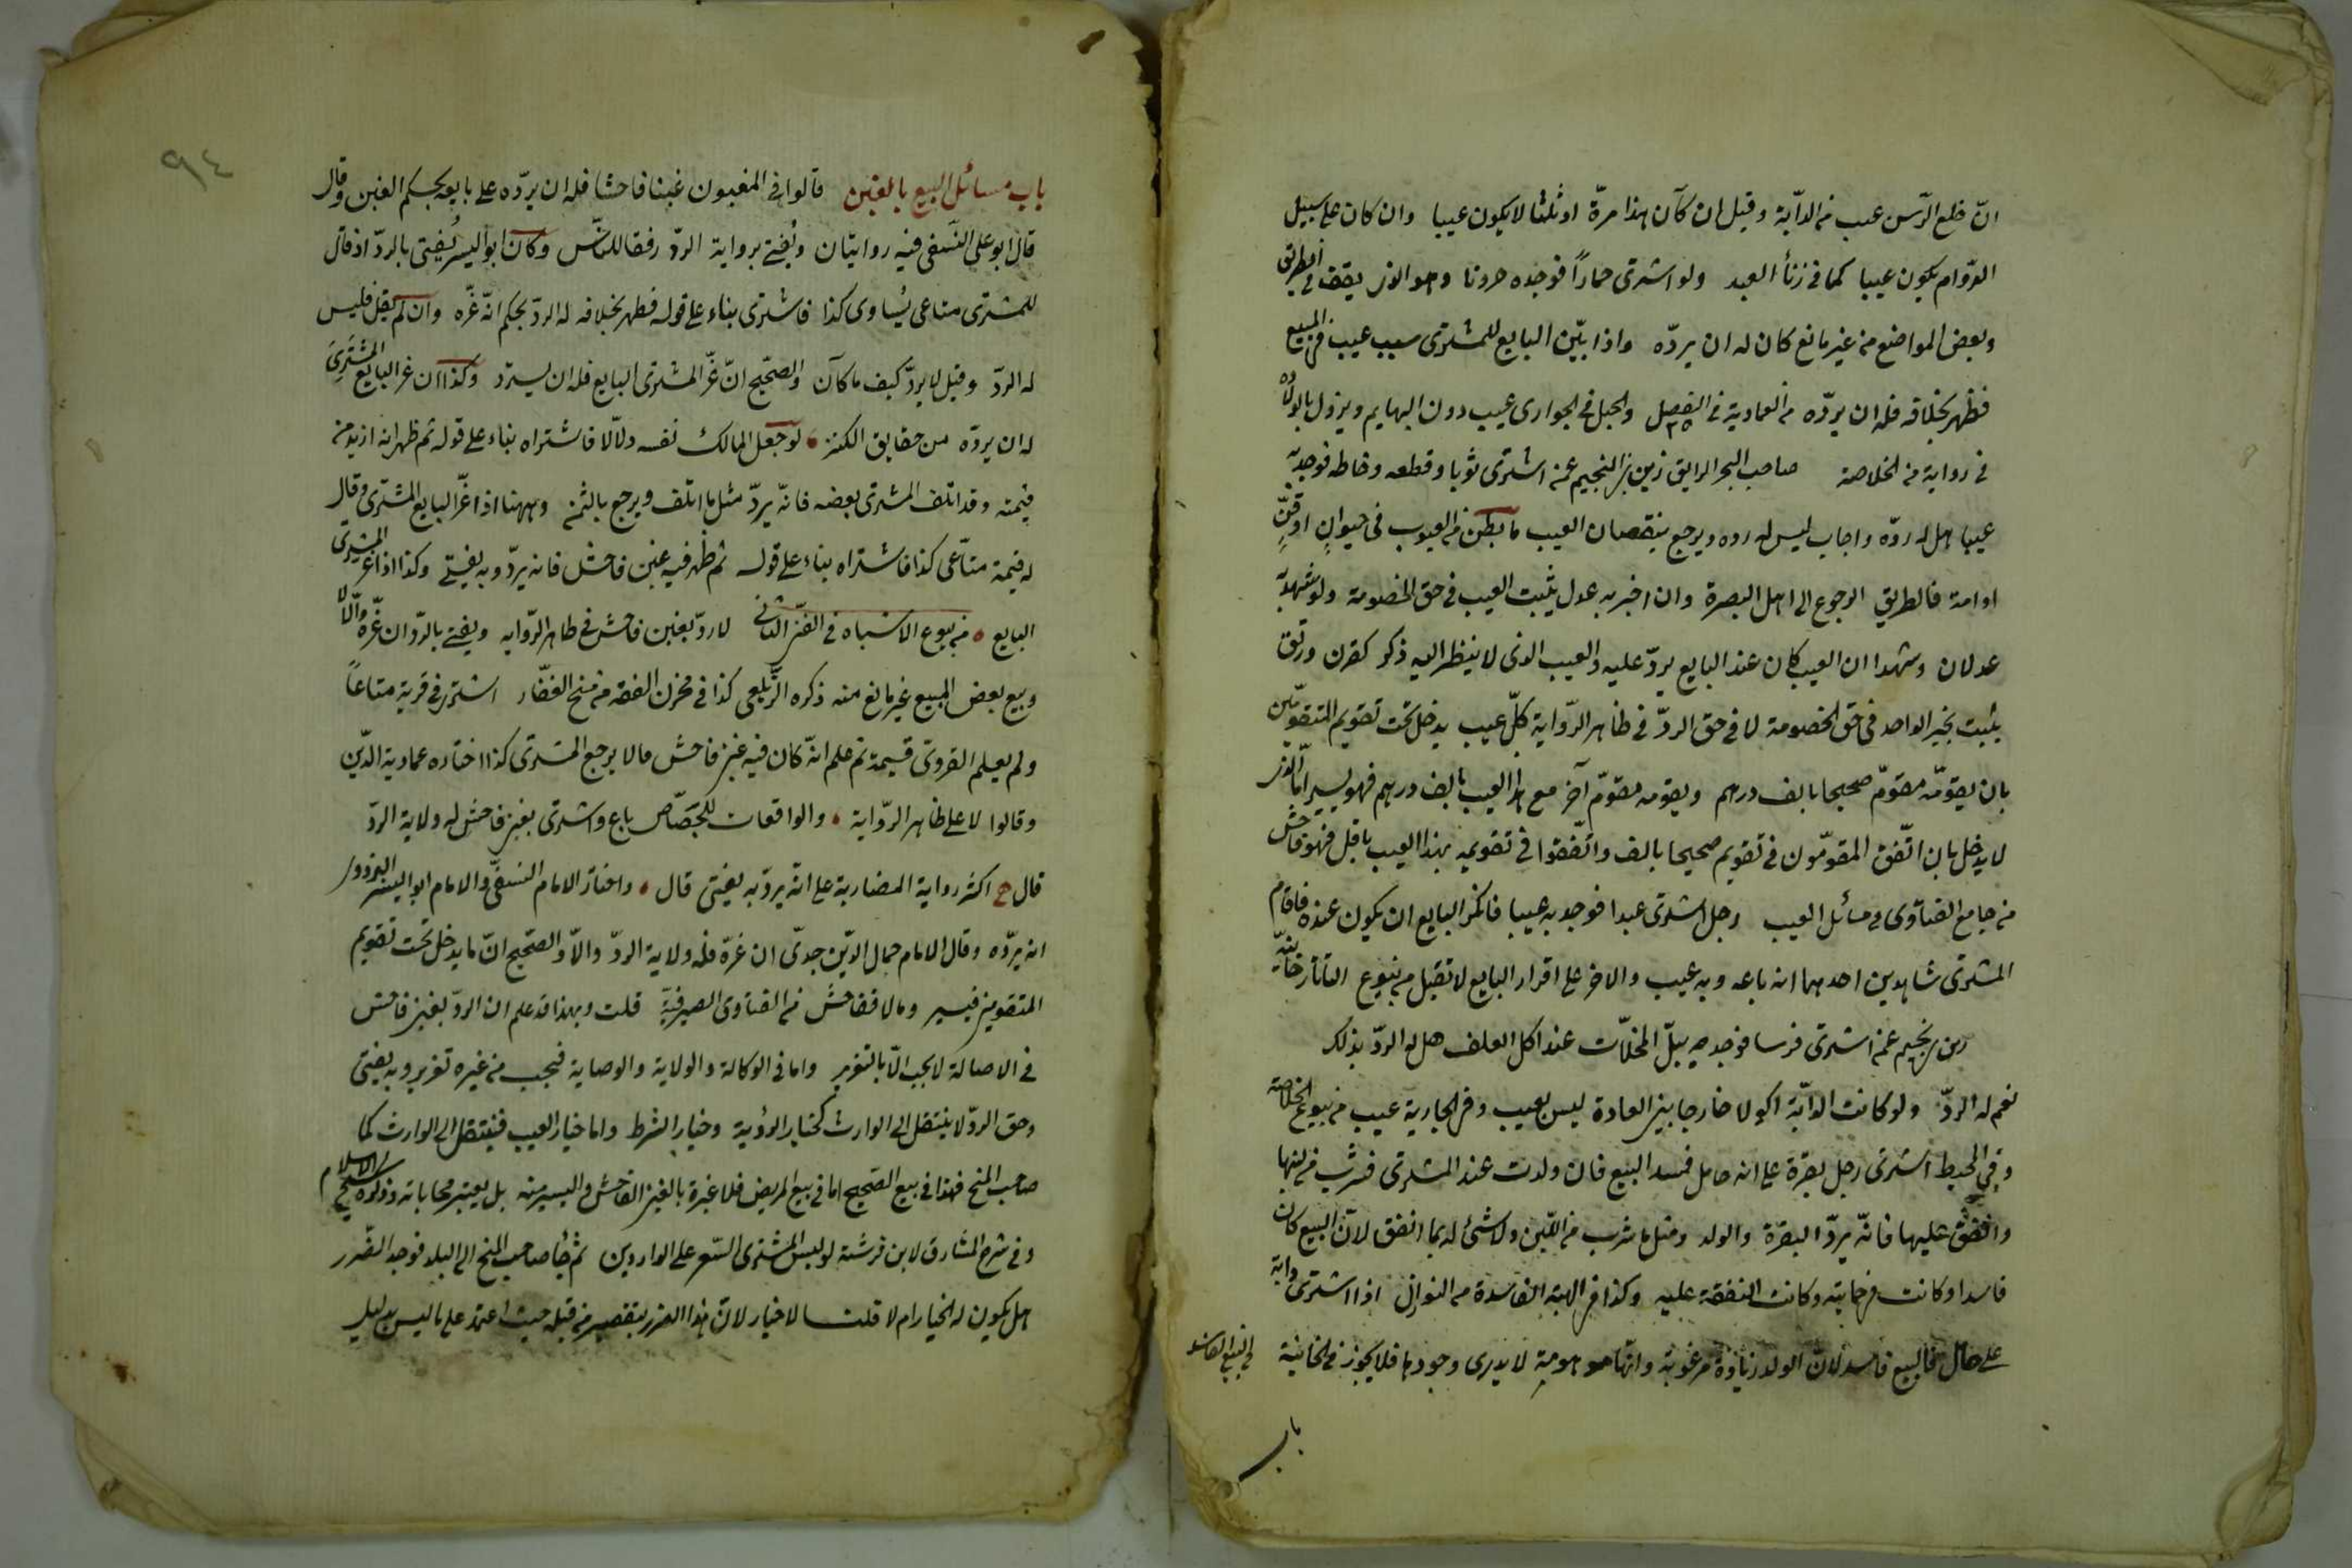 انّ خلع الرأس عيب من الدابّة وقيل ان كان هذا مرة او ثلثا لا يكون عيبا وان كان على سبيل
الدوام يكون عيبا كما في زنأ العبد ولو اشترى حماراً فوجده حرونا وهو الذي يقف في الطريق
وبعض المواضع من غير مانع كان له ان يردّه واذا بيّن البايع للمشترى سبب عيب في المبيع
فظهر بخلافه فله ان يردّه من العمادية في الفصل ٢٥ والحبل في الجوارى عيب دون البهايم ويزول بالولادة
في رواية من الخلاصة صاحب البحر الرايق زين بن النجيم عمن اشترى ثوبا وقطعه وخاطه فوجد به
عيبا هل له ردّه واجاب ليس له رده ويرجع بنقصان العيب ما بطن من العيوب في حيوانٍ او قنٍّ
او امة فالطريق الرجوع الى اهل البصرة وان اخبر به عدل يثبت العيب في حق الخصومة ولو شهد به
عدلان وشهدا ان العيب كان عند البايع يردّ عليه والعيب الذى لا ينظر اليه ذكر كقرن ورتق
يثبت بخبر الواحد في حق الخصومة لا في حق الردّ في ظاهر الرّواية كلّ عيب يدخل تحت تقويم المتقومّين
بان يقوّمه مقوّم صحيحا بالف درهم ويقومه مقوّم آخر مع هذا العيب بالف درهم فهو يسير امّا الذى
لا يدخل بان اتّفق المقوّمون في تقويم صحيحا بالف واتّفقوا في تقويمه بهذا العيب باقل فهو فاحش
من جامع الفتاوى في مسائل العيب رجل اشترى عبدا فوجد به عيبا فانكر البايع ان يكون عنده فاقام
المشترى شاهدين احدهما انه باعه وبه عيب والاخر على اقرار البايع لا تقبل من بيوع التاتارخانيّة
ابن نجيم عمن اشترى فرسا فوجده يبلّ المخلّات عند اكل العلف هل له الردّ بذلك
نعم له الردّ ولو كانت الدّابّة اكولا خارجا بين العادة ليس بعيب وفي الجارية عيب من بيوع الخلاصة
وفي المحيط اشترى رجل بقرة على انه حامل فسد البيع فان ولدت عند المشترى فشرب من لبنها
وانفق عليها فانّه يردّ البقرة والولد ومثل ما شرب من اللّبن ولا شئ له بما انفق لانّ البيع كان
فاسدا وكانت في ضمانه وكانت النفقة عليه وكذا في الهبة الفاسدة من النوازل اذا اشترى دابة
على حال فالبيع فاسد لانّ الولد زيادة مرغوبة وانّها موهومة لا يدرى وجودها فلا يجوز من الخانية في البيع الفاسد
باب
٩٤
باب مسائل البيع بالغبن قالوا في المغبون غبنا فاحشا فله ان يردّه على بايعه بحكم الغبن وقال
قال ابو على النسفى فيه روايتان ويُفتى برواية الردّ رفقا للنّاس وكان ابو اليسر يُفتى بالردّ اذ قال
للمشترى متاعى يُساوى كذا فاشترى بناء على قوله فظهر بخلافه له الردّ بحكم انّه غرّه وان لم يقل فليس
له الردّ وقيل لا يردّ كيف ما كان والصّحيح انّ غرّ المشترى البايع فله ان يستردّ وكذا ان غر البايع المشترى
له ان يردّه من حقايق الكنز لو جعل المالك نفسه دلّالا فاشتراه بناء على قوله ثم ظهر انه ازيد من
قيمته وقد اتلف المشترى بعضه فانّه يردّ مثل ما اتلف ويرجع بالثمن وههنا اذا غرّ البايع المشترى وقال
له قيمة متاعى كذا فاشتراه بناء على قوله ثم ظهر فيه غبن فاحش فانه يردّ وبه يفتى وكذا اذا غر المشترى
البايع من بيوع الاشباه في الفنّ الثانى لا ردّ بغبن فاحش في ظاهر الرّوايه ويفتى بالردّ ان غرّه والّا لا
وبيع بعض المبيع غير مانع منه ذكره الزّيلعى كذا في مخزن الفقه من منح الغفّار اشترى في قرية متاعاً
ولم يعلم القروىّ قيمة ثم علم انّه كان فيه غبن فاحش مالا يرجع المشترى كذا اختاره عماديه الدّين
وقالوا لا على ظاهر الرّواية والواقعات للجصّاص باع واشترى بغبن فاحش له ولاية الردّ
قال ح اكثر رواية المضاربة على انه يردّ به يفتى قال واختار الامام النسفىّ والامام ابو اليسر البزدوى
انه يردّه وقال الامام جمال الدّين جدّى ان غرّه فله ولاية الردّ والاّ والصّحيح انّ ما يدخل تحت تقويم
المتقومين فيسير وما لا ففاحش من الفتاوى الصيرفيّة قلت وبهذا قد علم ان الردّ بغبن فاحش
في الاصالة لا يجب الّا بالتغرير واما في الوكالة والولاية والوصاية فيجب من غيره تغرير وبه يفتى
وحق الردّ لا ينتقل الى الوارث كخيار الرؤية وخيار الشرط واما خيار العيب فينتقل الى الوارث كما
صاحب المنح فهذا في بيع الصّحيح اما في بيع المريض فلا عبرة بالغبن الفاحش واليسير منه بل يعتبر محاباته
وفي شرح المشارق لابن فرشته لو لبس المشترى السّعر على الواردين ثم جأ صاحب المنح الى البلد فوجد الضّرر
هل يكون له الخيار ام لا قلت لا خيار لانّ هذا الضرر بتقصير من قبله حيث اعتمد على ما ليس بدليل